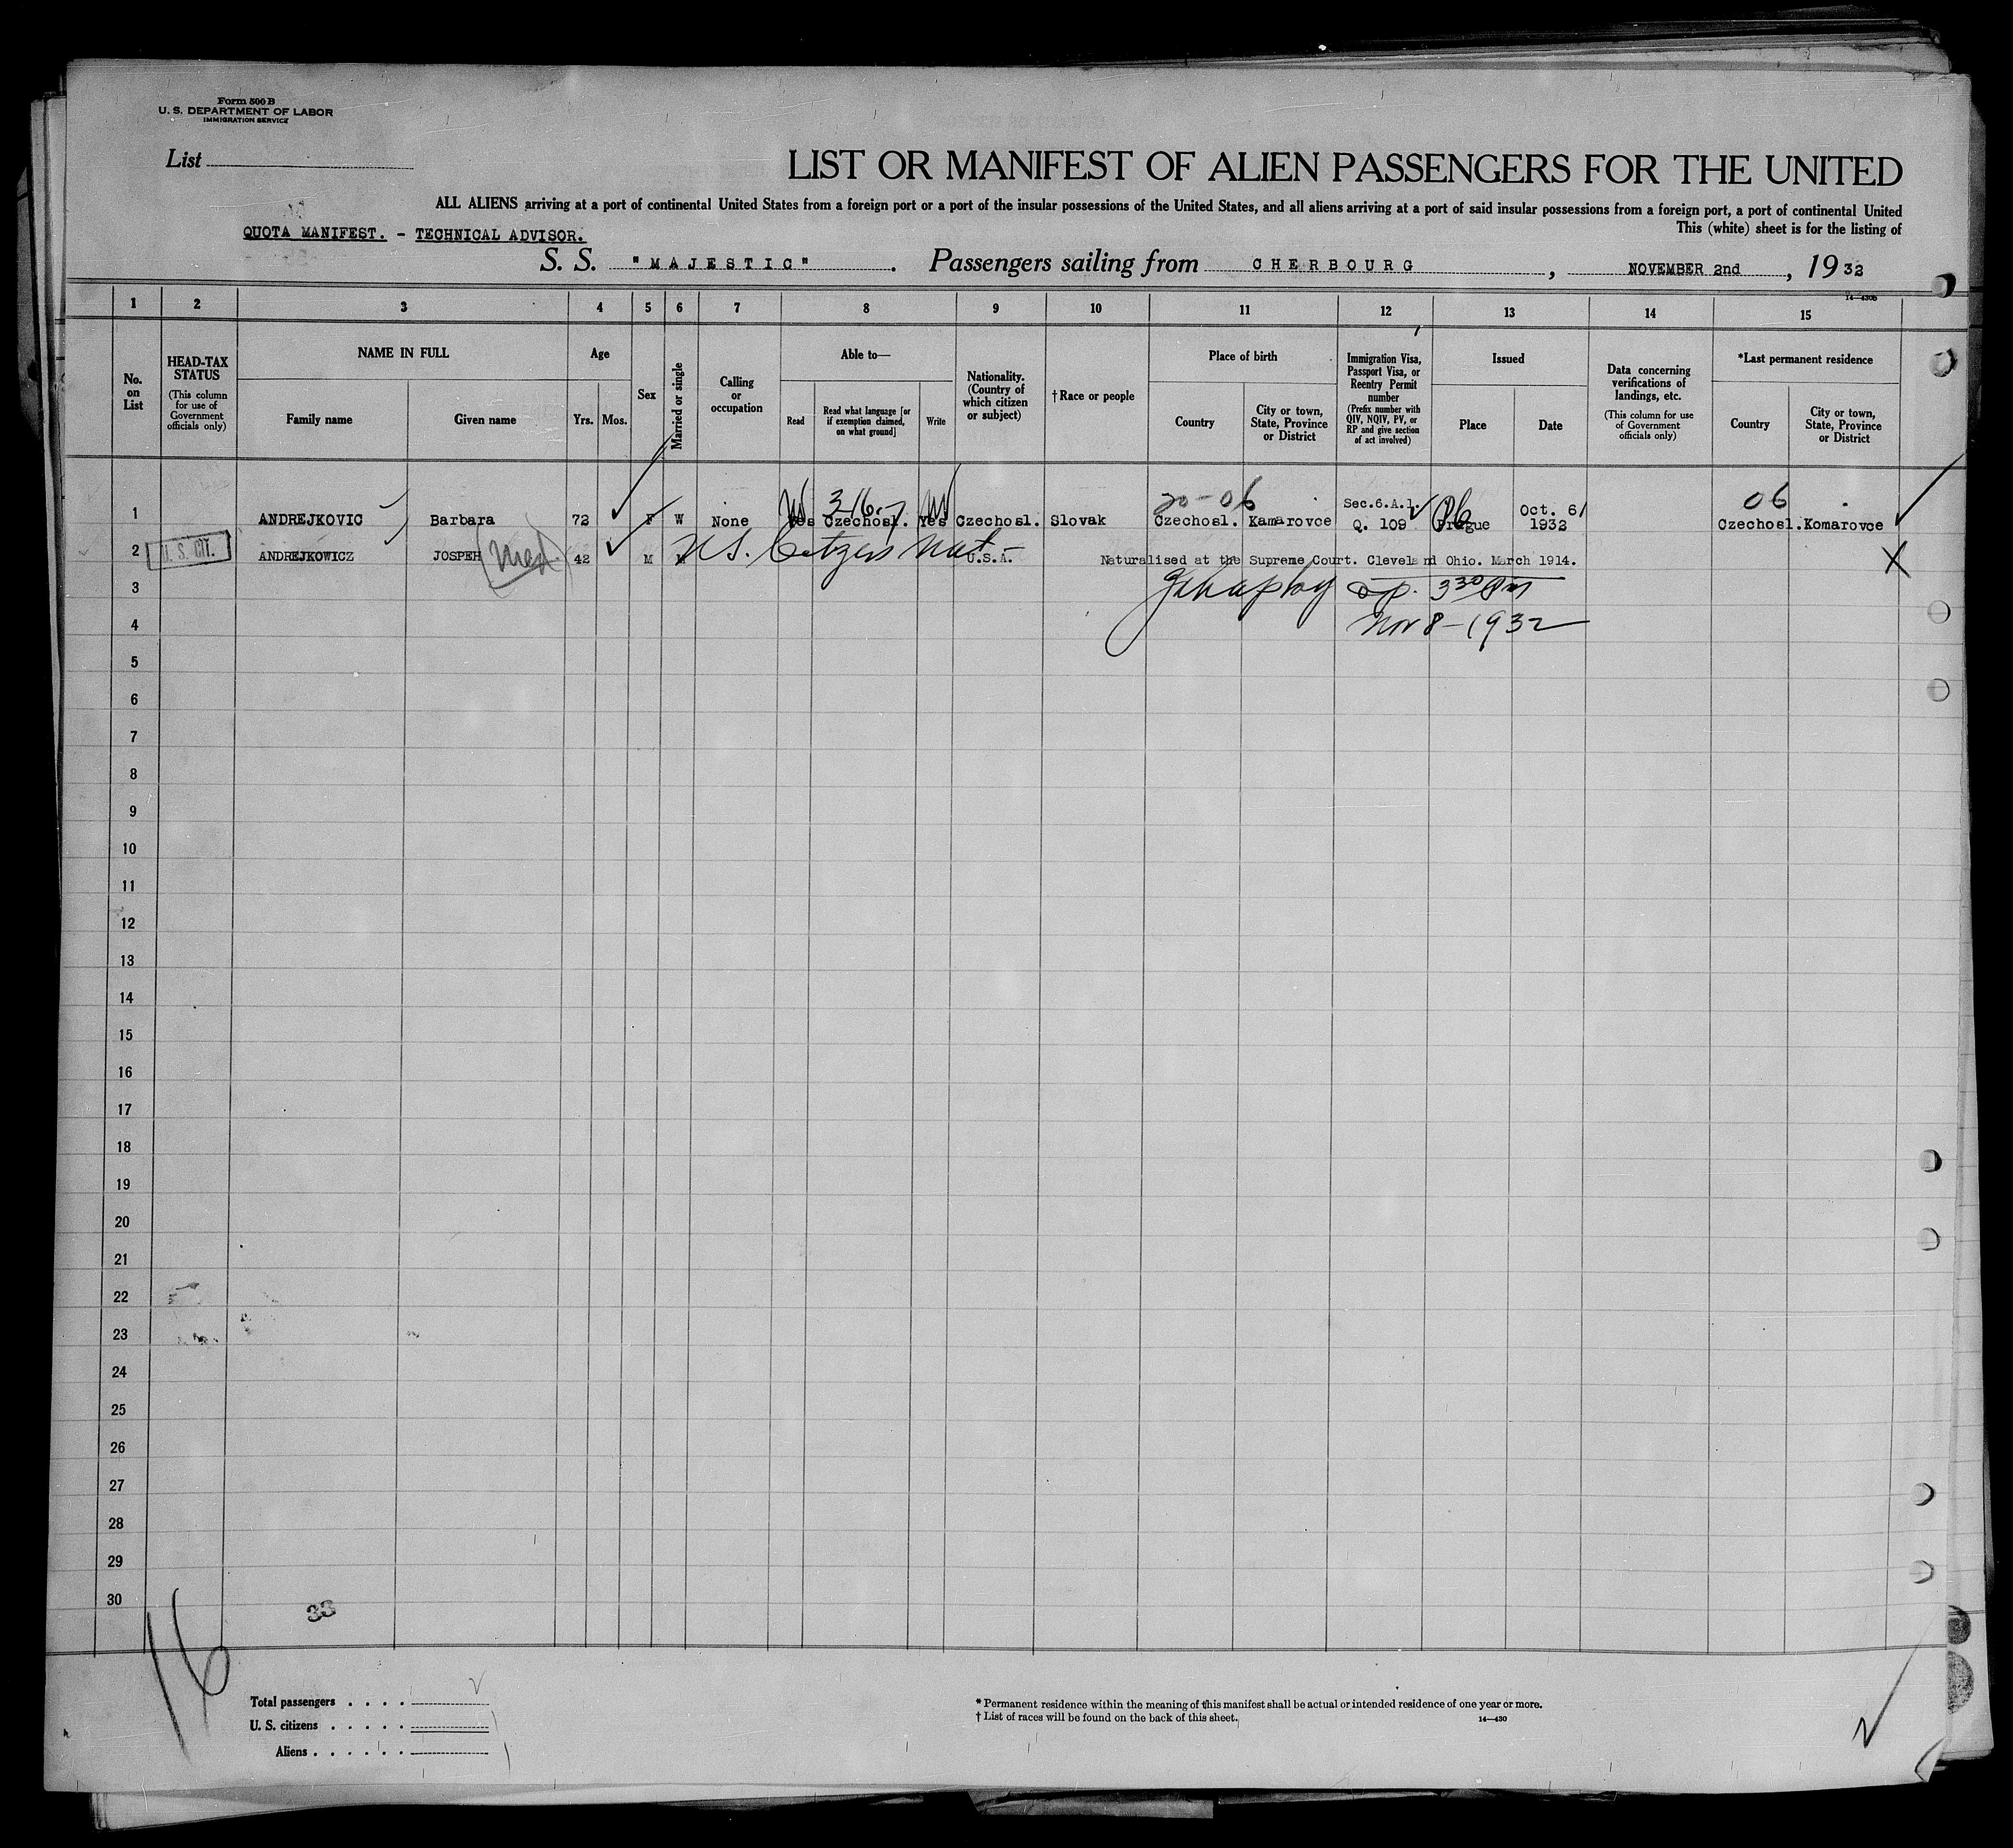 Form 500 B
U. S. DEPARTMENT OF LABOR
IMMIGRATION SERVICE
List
LIST OR MANIFEST OF ALIEN PASSENGERS FOR THE UNITED
ALL ALIENS arriving at a port of continental United States from a foreign port or a port of the insular possessions of the United States, and all aliens arriving at a port of said insular possessions from a foreign port, a port of continental United
This (white) sheet is for the listing of
QUOTA MANIFEST. - TECHNICAL ADVISOR.
S. S. "MAJESTIC". Passengers sailing from CHERBOURG, NOVEMBER 2nd, 1932
14—430b
1 2 3 4 5 6 7 8 9 10 11 12 13 14 15
No. on List
HEAD-TAX STATUS
(This column for use of Government officials only)
NAME IN FULL
Family name
Given name
Age
Yrs. Mos.
Sex
Married or single
Calling or occupation
Able to—
Read
Read what language [or if exemption claimed, on what ground]
Write
Nationality. (Country of which citizen or subject)
†Race or people
Place of birth
Country
City or town, State, Province or District
Immigration Visa, Passport Visa, or Reentry Permit number
(Prefix number with QIV, NQIV, PV, or RP and give section of act involved)
Issued
Place
Date
Data concerning verifications of landings, etc.
(This column for use of Government officials only)
*Last permanent residence
Country
City or town, State, Province or District
316 20-06 Sec.6.A.1. Oct. 6/ 06
1 ANDREJKOVIC Barbara 72 F W None Yes Czechosl. Yes Czechosl. Slovak Czechosl. Kamarovce Q. 109 Prague 1932 Czechosl. Komarovce
U.S. Citizen Nat-
2 U. S. CIT. ANDREJKOWICZ JOSPEH (Med) 42 M M U.S.A. Naturalised at the Supreme Court. Cleveland Ohio. March 1914. X
3 3 30 Pm
4 Nov 8-1932
5
6
7
8
9
10
11
12
13
14
15
16
17
18
19
20
21
22
23
24
25
26
27
28
29
30
33
16
Total passengers . . . .
U. S. citizens . . . . .
Aliens . . . . . .
* Permanent residence within the meaning of this manifest shall be actual or intended residence of one year or more.
† List of races will be found on the back of this sheet.
14—430